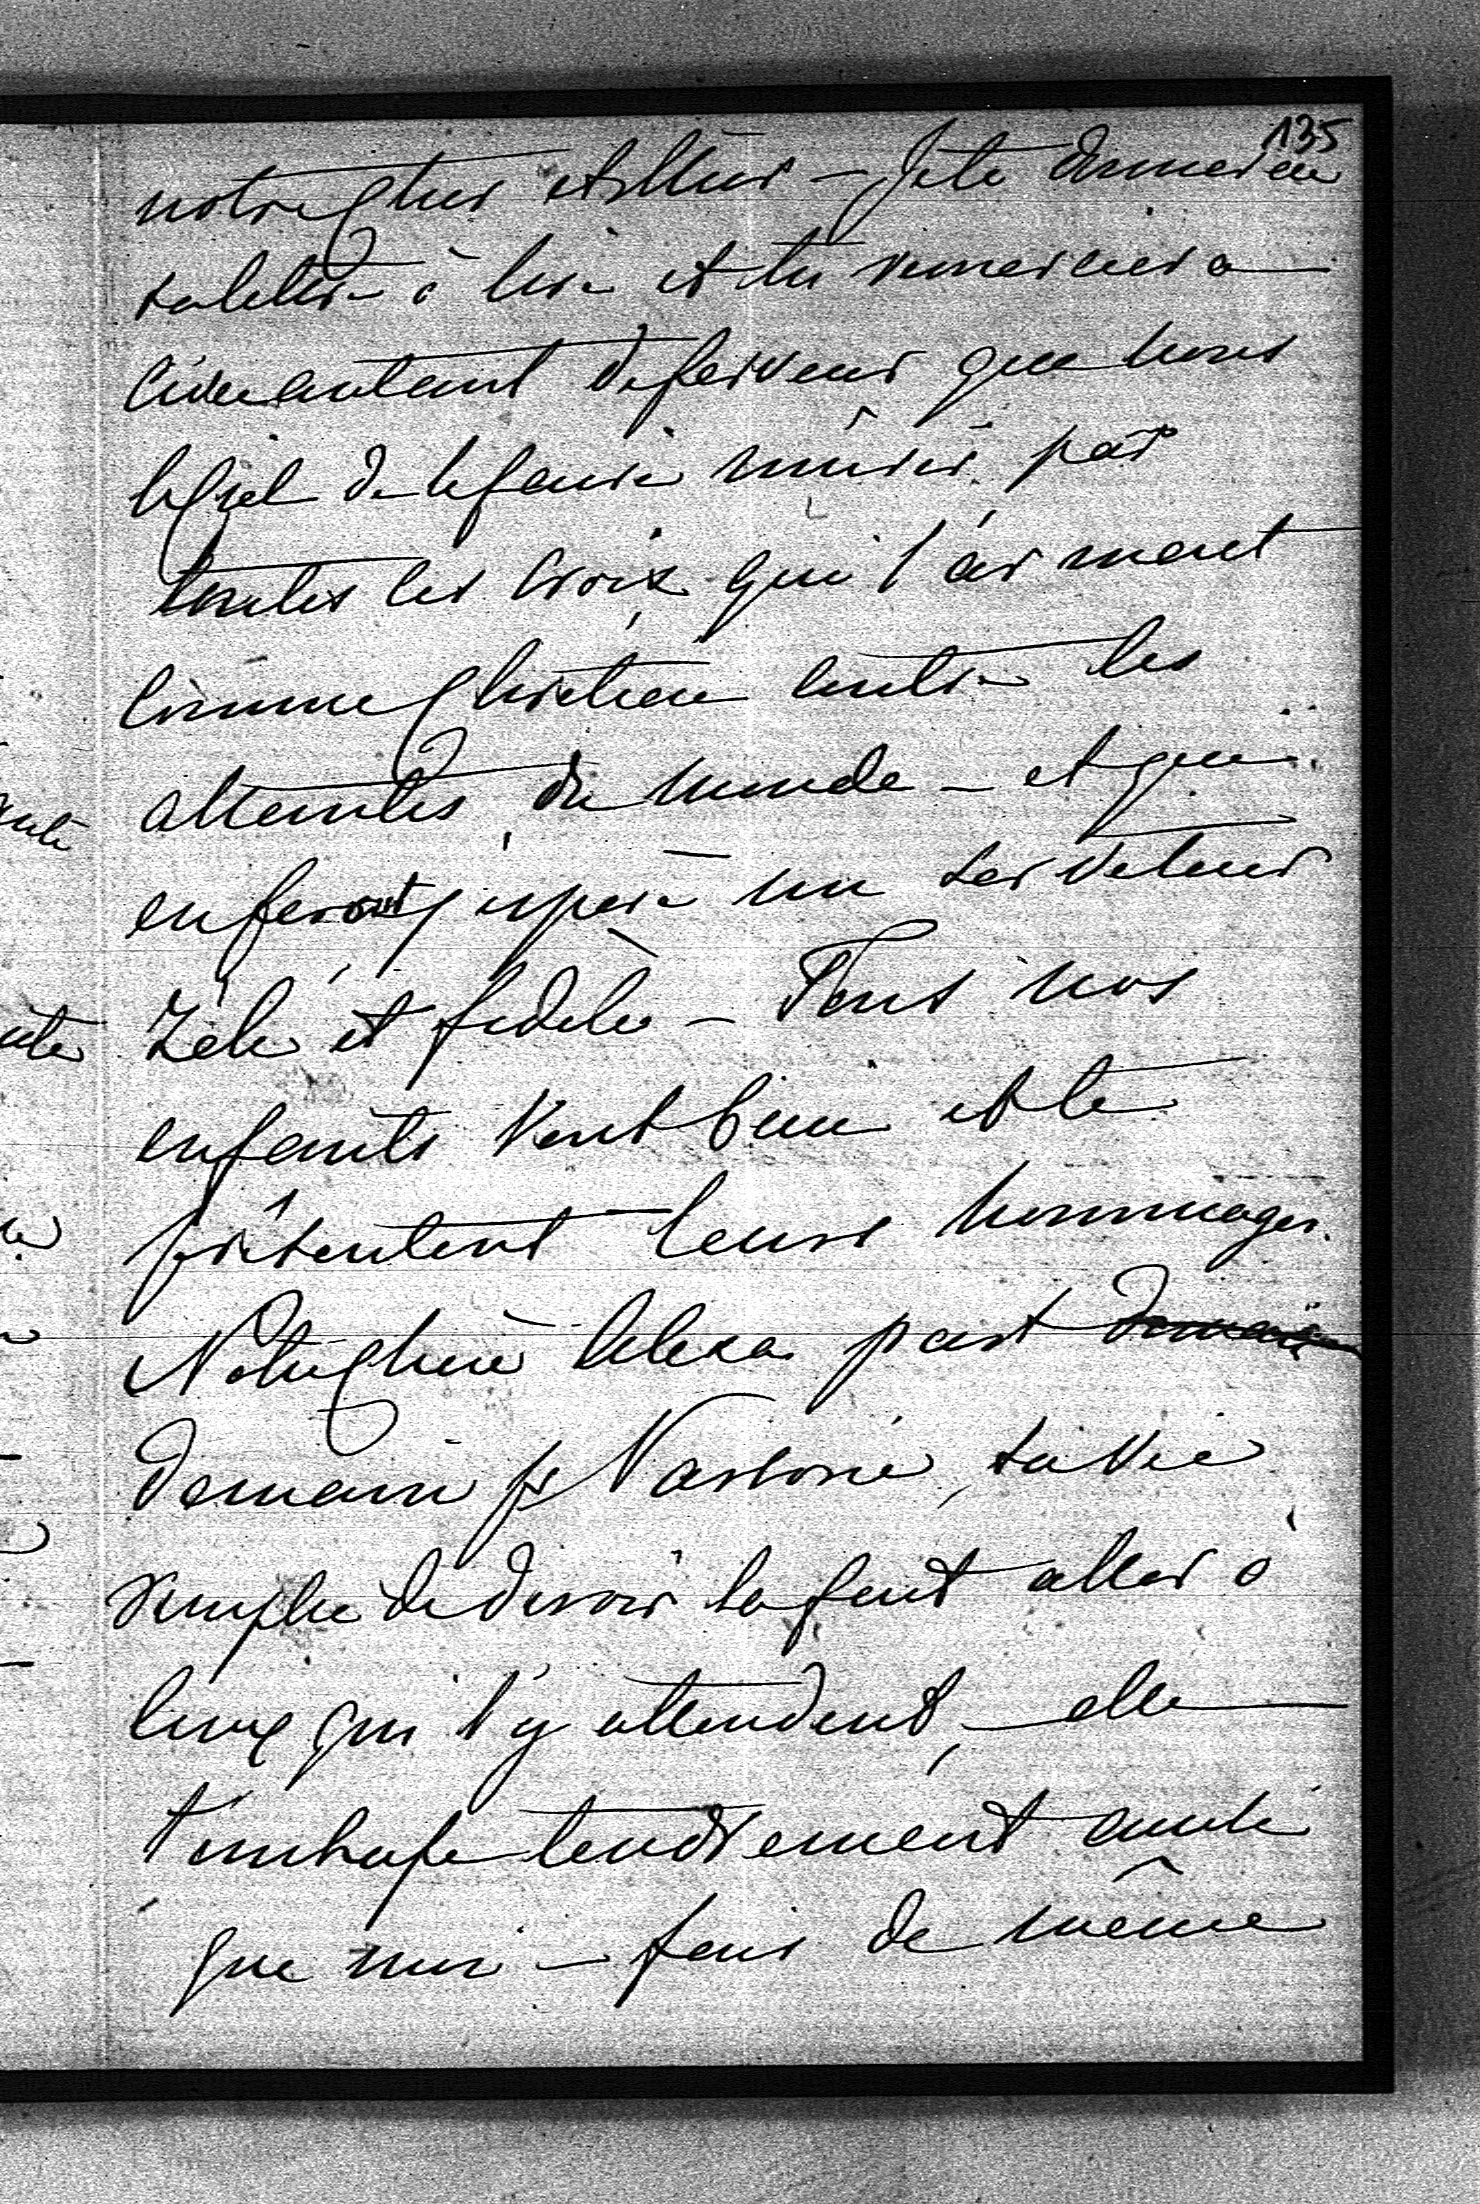 135
notre cher Arthur – Je te donnerai
sa lettre à lire et tu remerciera
avec autant de ferveur que nous
le Ciel de le faire mûrir par
toutes les croix qui l'arment
comme Chrétien contre les
atteintes du monde – et qui
en feront j'espère un serviteur
zélé et fidèle – Tous nos
enfants vont bien et te
présentent leurs hommages.
Notre chère Alexa part demain
demain pr Varsovie, sa vie
remplie de devoir la fait aller à
ceux qui l'y attendent, – elle
t'embrasse tendrement ainsi
que moi – fais de même